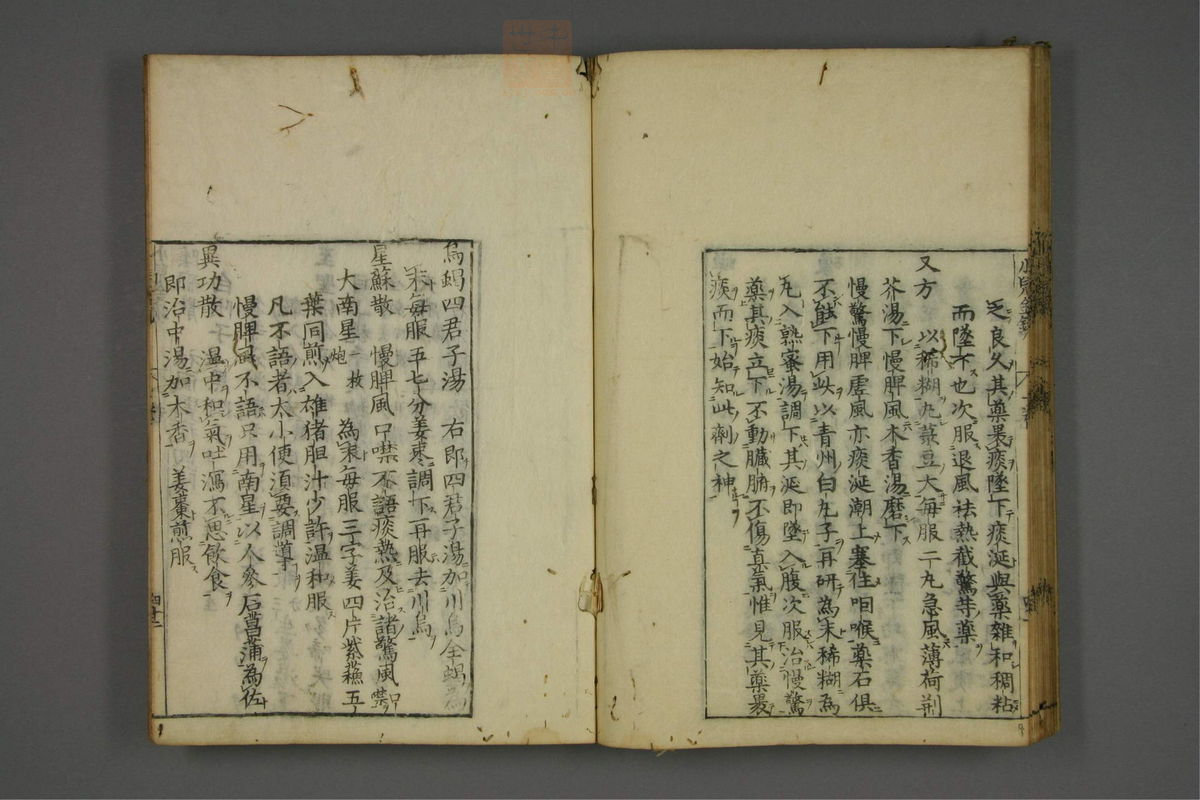 乏良久其藥裹痰墜下痰涎與藥雜和稠粘
而墜下也次服退風祛熱截驚等藥
又方 以稀糊丸菉豆大每服二十丸急風薄荷荊
芥湯下慢脾風木香湯磨下
慢驚慢脾虛風亦痰涎潮上塞住咽喉藥石俱
不能下用此以青州白丸子再研為末稀糊為
丸入熟蜜湯調下其涎即墜入腹次服治慢驚
藥其痰立下不動臟腑不傷真氣惟見其藥裹
痰而下始知此劑之神
烏蝎四君子湯 右即四君子湯加川烏全蝎為
末每服五七分姜棗調下再服去川烏
星蘇散 慢脾風口噤不語痰熱及治諸驚風口噤
大南星一枚炮 為末每服三字姜四片紫蘇五
葉同煎入雄猪胆汁少許温和服
凡不語者大小便須要調導
慢脾風不語只用南星以人參石菖蒲為佐
異功散 温中和氣吐瀉不思飲食
即治中湯加木香 姜棗煎服
四十二